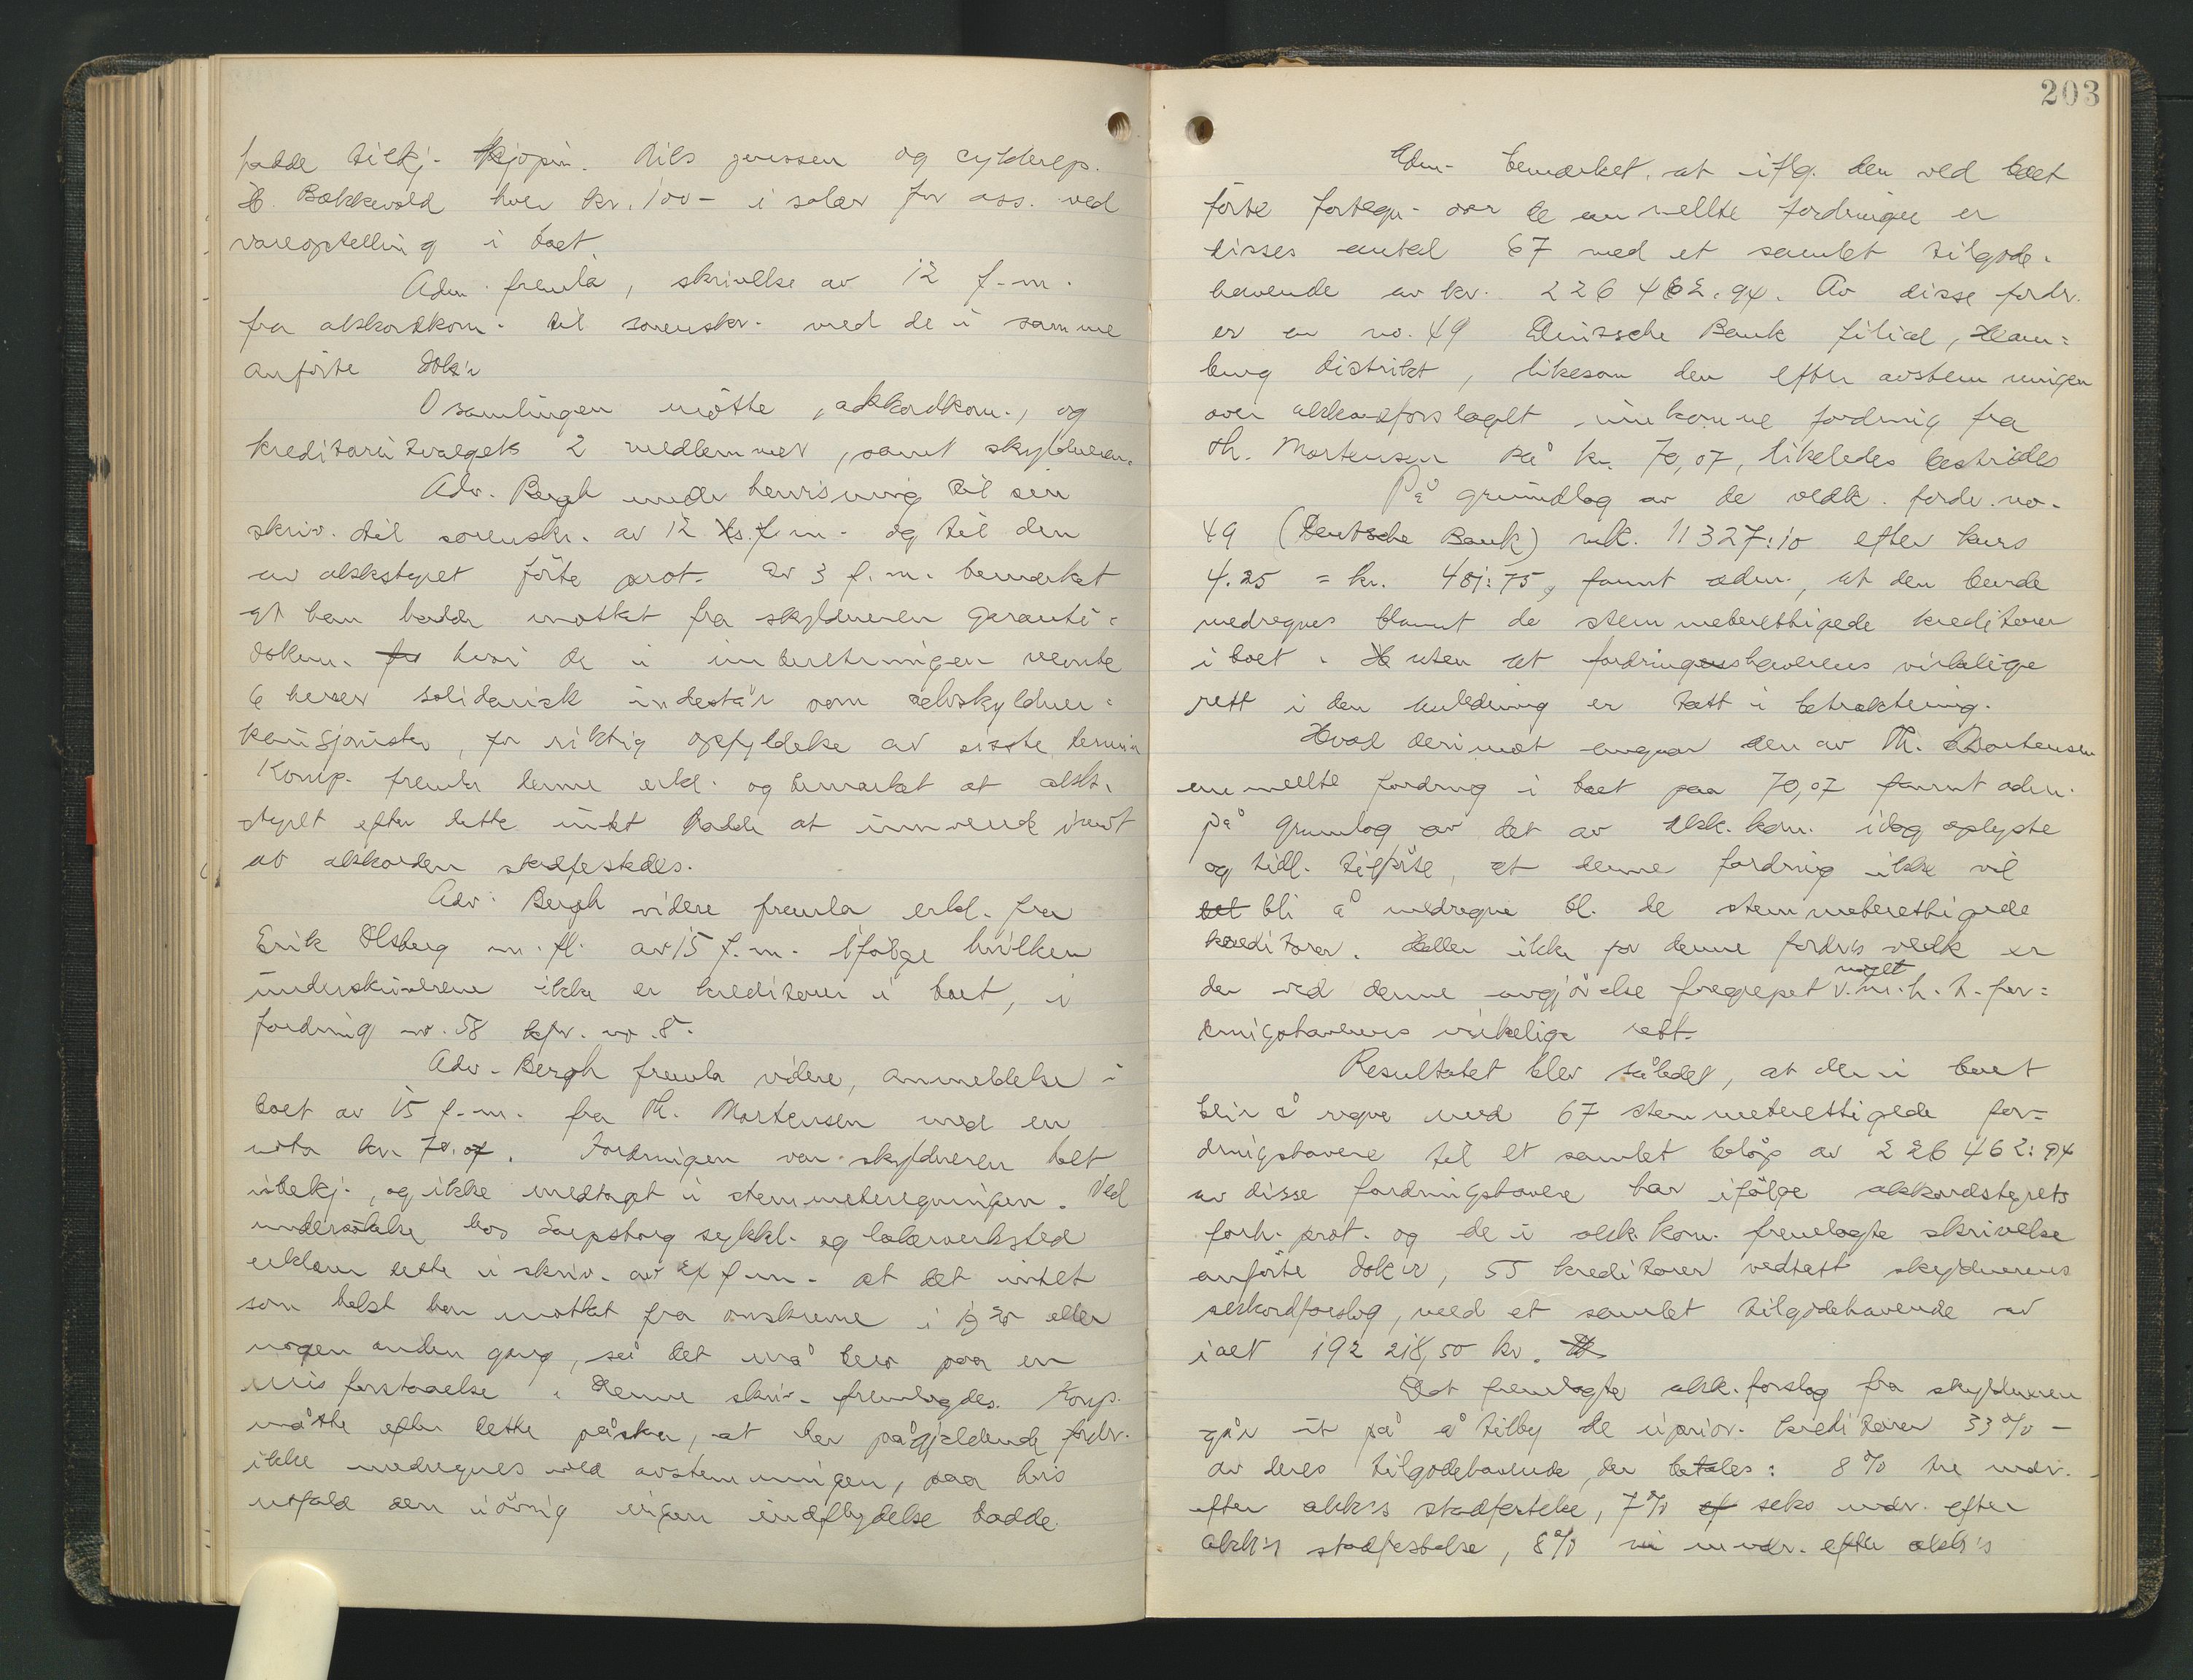 hadde tilkj. kjøpm. Nils Jenssen og cykkelrep.
H. Bakkevold hver kr. 100- i salær for ass. ved
vareoptelling i boet
Adm. fremla, skrivelse av 12 f.m.
fra akkordkom. til sorenskr. med de i samme
anførte dok'r
I samlingen møtte, akkordkom., og
kreditorutvalgets 2 medlemmer, samt skyldneren.
Adv. Bergh under henvisning til sin
skriv. til sorenskr. av 12 ds. f.m. og til den
av akkstyret førte prot. av 3 f.m. bemerket
at han hadde mottat fra skyldneren garanti-
dokum. for hvori de i innberetningen nevnte
6 herrer solidarisk indestår som selvskyldner-
kausjonister, for riktig opfyldelse av siste termin
Komp. fremla denne erkl. og bemerket at akk.
styret efter dette intet hadde at innvende imot
at akkorden stadfestedes.
Adv. Bergh videre fremla erkl. fra
Erik Olsberg m.fl. av 15 f.m. ifølge hvilken
underskriverne ikke er kreditorer i boet, i
fordring no. 58 kfr. no. 8.
Adv. Bergh fremla videre, anmeldelse i
boet av 15 f.m. fra Th. Mortensen med en
nota kr. 70.07. Fordringen var skyldneren helt
ubekj., og ikke medtaget i stemmeberegningen. Ved
undersøkelse hos Sarpsborg sykkel. og lakerverksted
erklærer dette i skriv. av f.m. at det intet
som helst har mottat fra ønskerne i 1930 eller
nogen anden gang, så det må bero paa en
misforstaaelse. Denne skriv. fremlagdes. Komp.
måtte efter dette påstaa, at den pågjældende fordr.
ikke medregnes ved avstemningen, paa hvis
utfald den iøvrig ingen indflydelse hadde.
203
Adm. bemerket, at iflg. den ved boet
førte fortegn. over de anmeldte fordringer er
disses antal 67 med et samlet tilgode-
havende av kr. 226 462.94. Av disse fordr.
er en no. 49 Deutsche Bank filial, Ham-
burg distrikt, likesom den efter avstemningen
over akkordforslaget innkomne fordring fra
Th. Mortensen på kr. 70,07, likeledes bestrides
På grundlag av de vedk. fordr. no.
49 (Deutsche Bank) mk. 11327:10 efter kurs
4.25 = kr. 481:75, fannt adm., at den burde
medregnes blannt de stemmeberettigede kreditorer
i boet. uten at fordringshaverens virkelige
rett i den anledning er tatt i betraktning.
Hvad derimot angaar den av Th. Mortensen
anmeldte fordring i boet paa 70,07 fannt adm.
på grunnlag av det av akk.kom. idag oplyste
og tidl. tilførte, at denne fordring ikke vil
bli å medregne bl. de stemmeberettigede
kreditorer. Heller ikke for denne fordrs vedk er
der ved denne avgjørelse foregrepet noget v.m.h.t. for-
dringshaverens virkelige rett.
Resultatet blev således, at der i boet
blir å regne med 67 stemmeberettigede for-
dringshavere til et samlet beløp av 226 462:94
av disse fordringshavere har ifølge akkordstyrets
forh. prot. og de i akk.kom. fremlagte skrivelse
anførte dok'er, 55 kreditorer vedtatt skyldnerens
akkordforslag, med et samlet tilgodehavende av
i alt 192 218,50 kr.
Det fremlagte akk.forslag fra skyldneren
går ut på å tilby de uprior. kreditorer 33% -
av deres tilgodehavende, der betales: 8% tre mdr.
efter akk's stadfestelse, 7% seks mdr. efter
akk's stadfestelse, 8% ni mndr. efter akk's